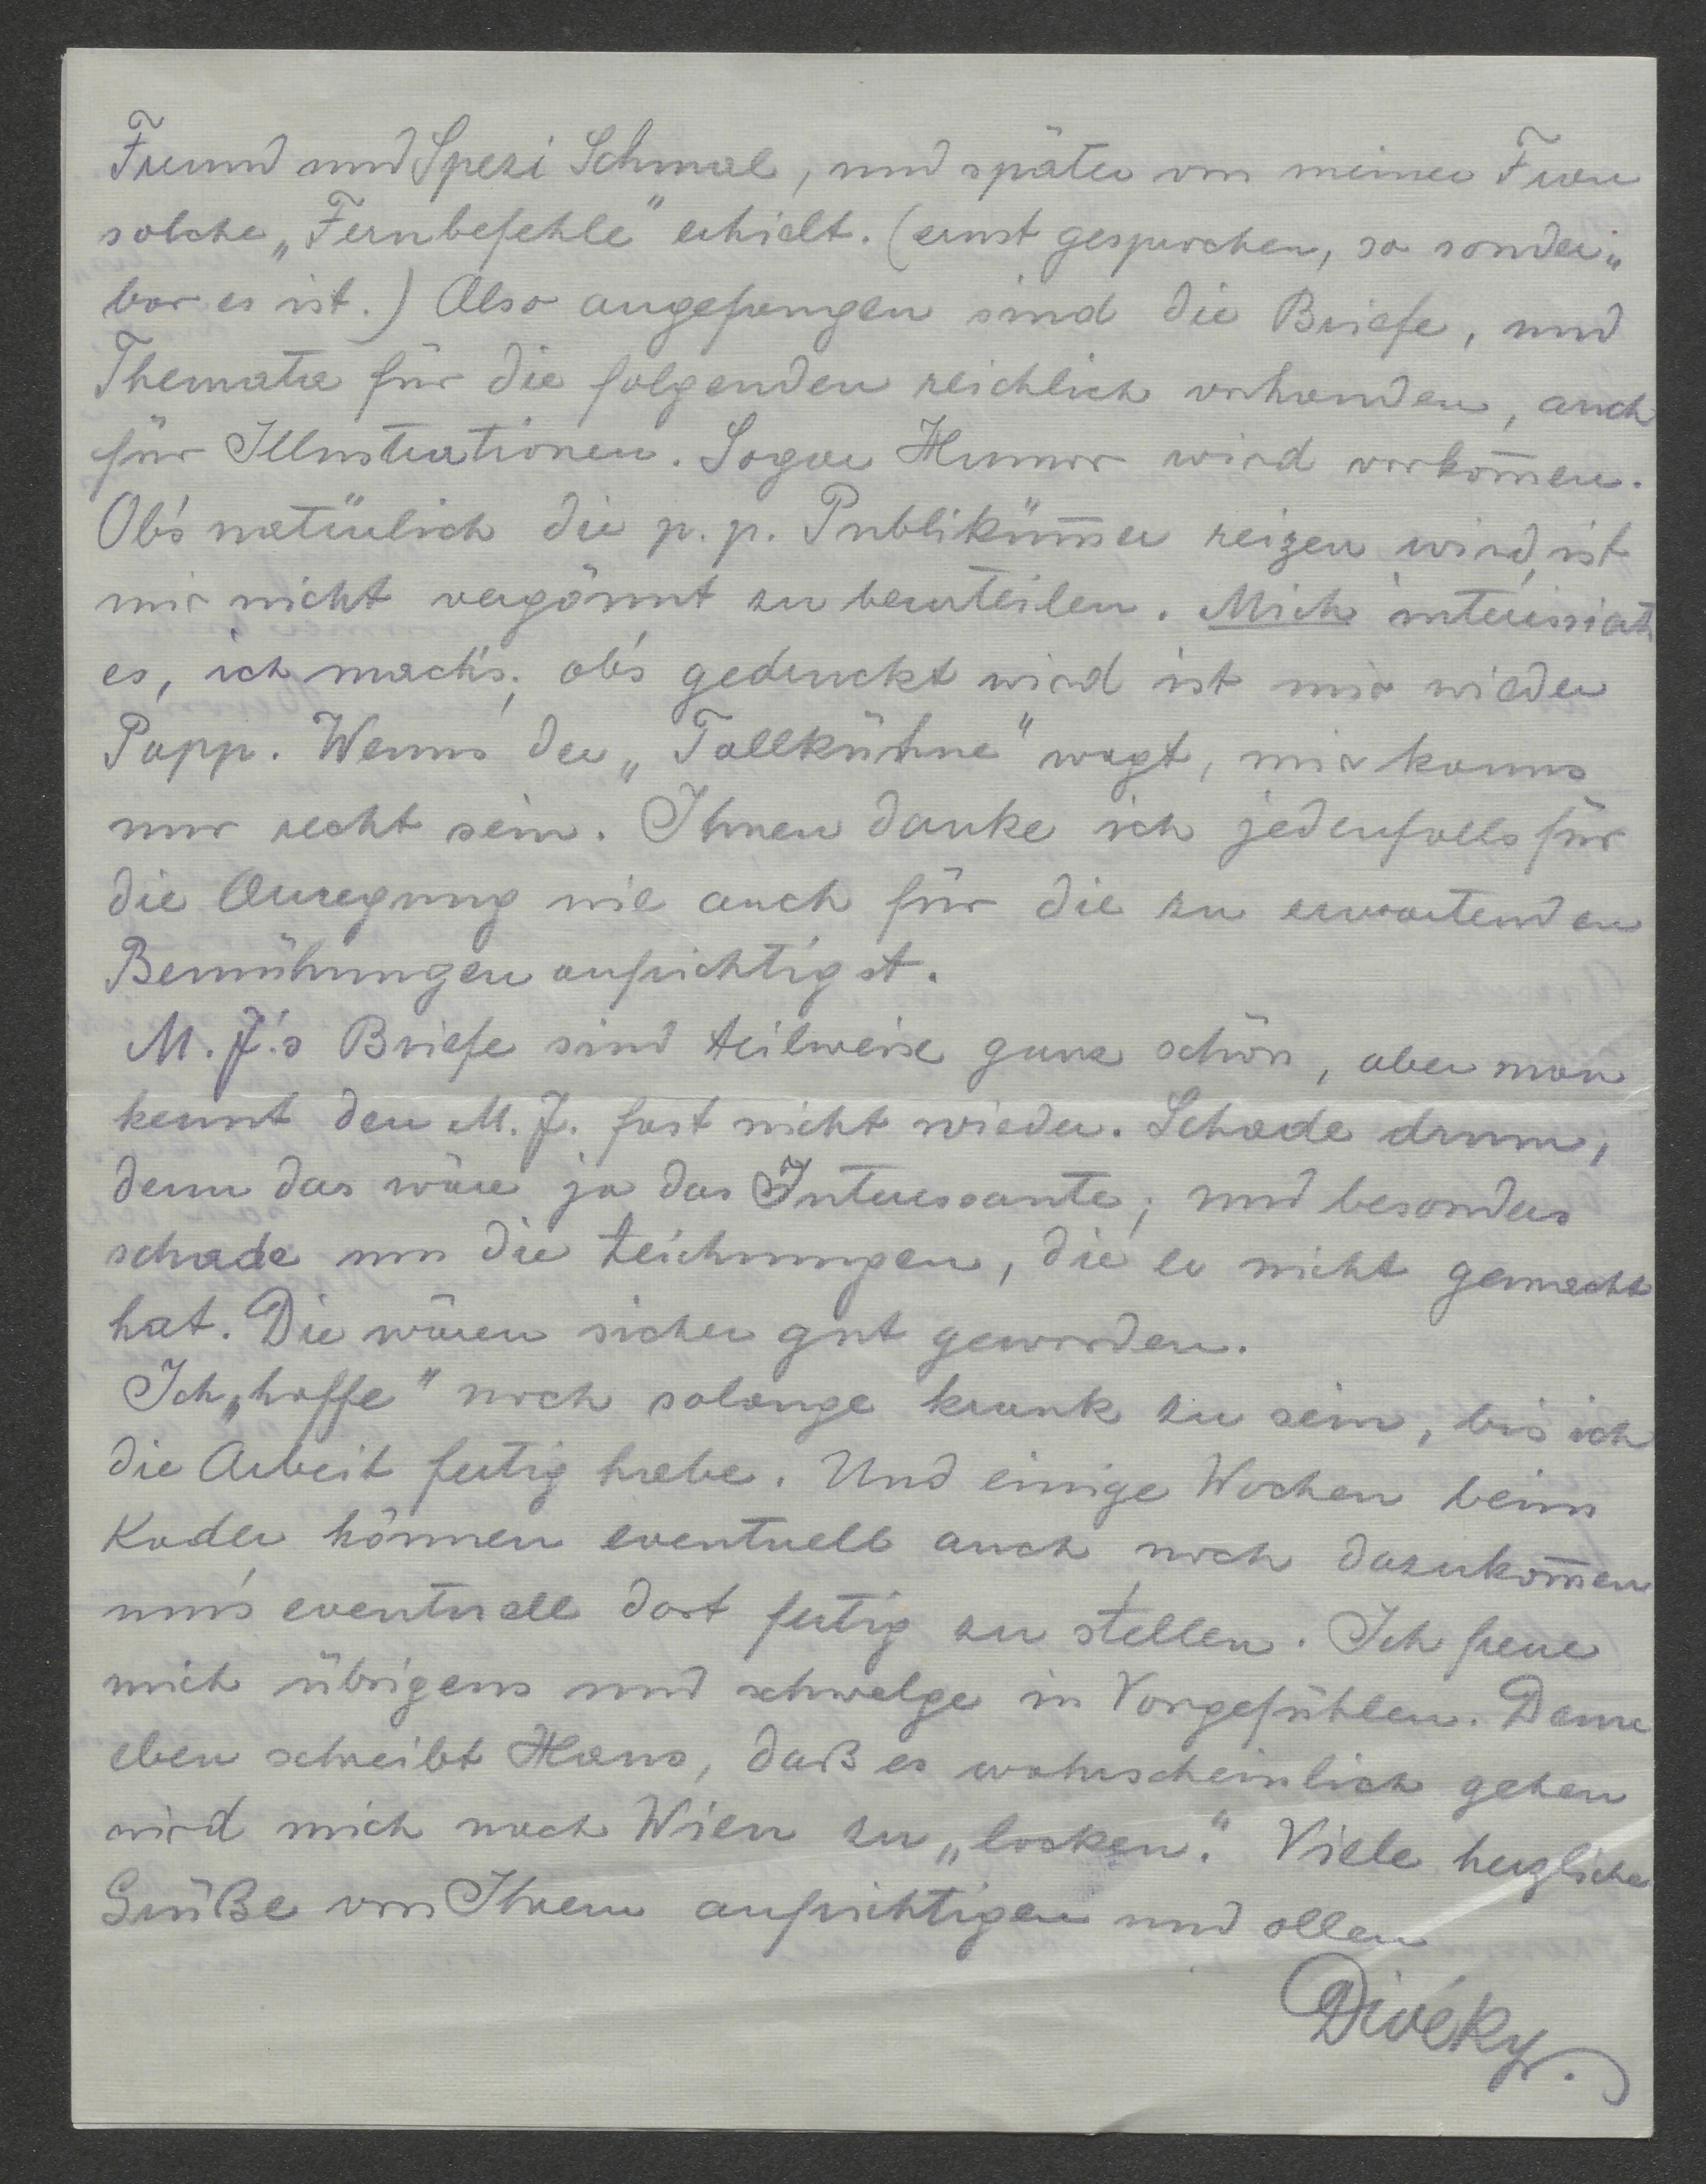 Freund und Spezi Schmal, und später von meiner Frau
solche „Fernbefehle“ erhielt. (ernst gesprochen, so sonder„
bar es ist.) Also angefangen sind die Briefe, und
Themata für die folgenden reichlich vorhanden, auch
für Illustrationen. Sogar Humor wird vorkom̅en.
Ob's natürlich die p. p. Publiküm̅er reizen wird, ist
mir nicht vergönnt zu beurteilen. Mich interessiert
es, ich mach's; ob's gedruckt wird ist mir wieder
Papp. Wenns der „Tollkühne“ wagt, mir kanns
nur recht sein. Ihnen danke ich jedenfalls für
die Anregung wie auch für die zu erwartenden
Bemühungen aufrichtigst.
M. J.'s Briefe sind teilweise ganz schön, aber man
kennt den M. J. fast nicht wieder. Schade drum,
denn das wäre ja das Interessante; und besonders
schade um die Zeichnungen, die er nicht gemacht
hat. Die wären sicher gut geworden.
Ich „hoffe“ noch solange krank zu sein, bis ich
die Arbeit fertig habe. Und einige Wochen beim
Kader können eventuell auch noch dazukom̅en
um's eventuell dort fertig zu stellen. Ich freue
mich übrigens und schwelge in Vorgefühlen. Denn
eben schreibt Hans, daß es wahrscheinlich gehen
wird mich nach Wien zu „locken.“ Viele herzliche
Grüße von Ihrem aufrichtigen und ollen
Divéky.